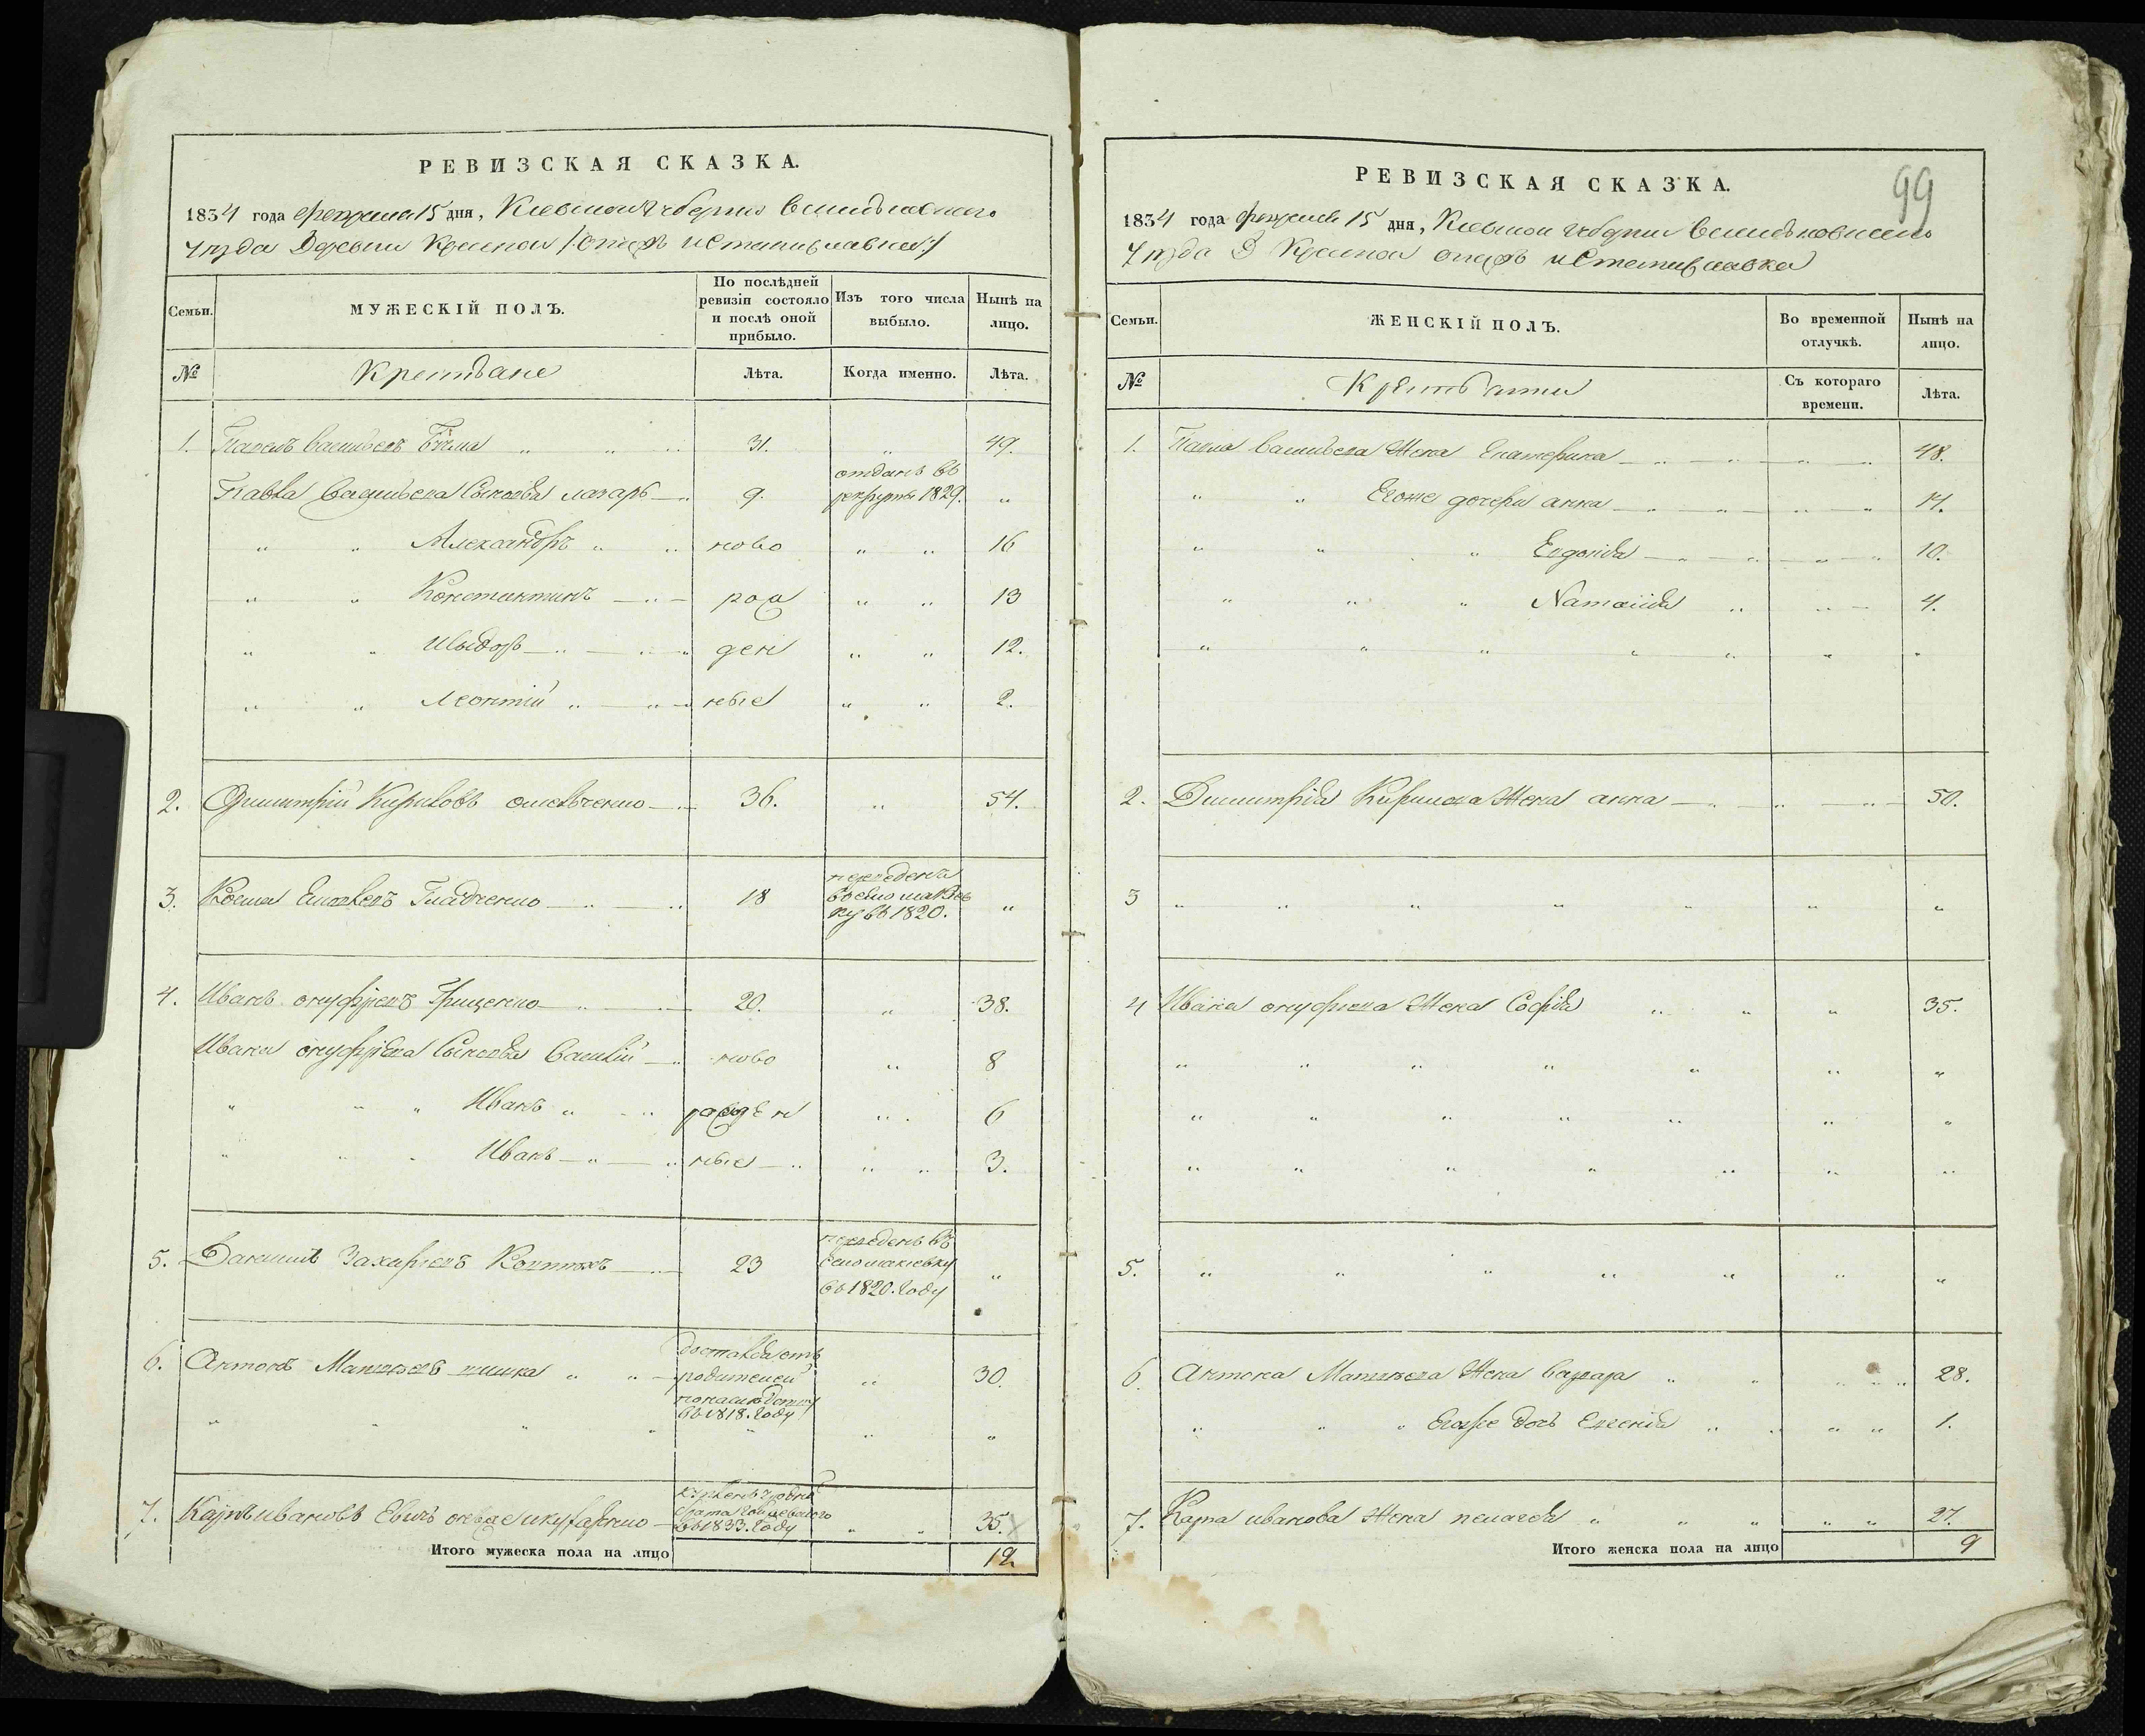 РЕВИЗСКАЯ СКАЗКА.
1834 года февраля 15 дня, Киевской губернии Васильковского
Уезда Деревни Красной /: онаж и Станиславка :/
Семьи.
МУЖЕСКІЙ ПОЛЪ.
По послѣдней ревизіи состояло и послѣ оной прибыло.
Изъ того числа выбыло.
Нынѣ на лицо.
№
Крестьяне
Лѣта.
Когда именно.
Лѣта.
1. Павелъ Васильевъ 31. " 49.
Павла Васильева Сыновья Лазарь 9. отданъ въ рекруты 1829. "
" " Александръ " " ново " " 16
" " Константинъ рож " " 13
" " Исидоръ ден " " 12.
" " Леонтій ные " " 2.
2. Димитрій Кириловъ 36. " 54.
3. Косма Гладченко 18 переведенъ въ 1820. "
4. Иванъ онуфріевъ Грищенко 20. " 38.
Ивана онуфріева Сыновья Василій ново " 8
" " " Иванъ " " рожден " 6
" " " Иванъ ные " " 3.
5. Захаріевъ 23 переведенъ въ въ 1820. Году "
6. Антонъ Матвѣевъ шишка " " родителей въ 1818. Году " 30.
" " " " " " "
7. Карпъ ивановъ брата въ 1833. Году " " 35.
Итого мужеска пола на лицо 12.
РЕВИЗСКАЯ СКАЗКА.
99
1834 года февраля 15 дня, Киевской губернии Васильковского
Уезда Д Красной онажъ и Станиславка
Семьи.
ЖЕНСКІЙ ПОЛЪ.
Во временной отлучкѣ.
Нынѣ на лицо.
№
Крестьянки
Съ котораго времени.
Лѣта.
1. Павла Васильева Жена Екатерина " " 48.
" " Егоже дочери анна " " 14.
" " " Евдокія " " 10.
" " " Наталія " " 4.
" " " " " " "
2. Димитрія Кирилова Жена анна " " 50.
3 " " " " " " "
4 Ивана онуфріева Жена Софія " " " 35.
" " " " " " "
" " " " " " "
" " " " " " "
5. " " " " " " "
6 Антона Матвѣева Жена Варвара " " " " 28.
" " " Егоже дочь " " " " 1.
7. Карпа иванова Жена пелагея " " " " " 27.
Итого женска пола на лицо 9